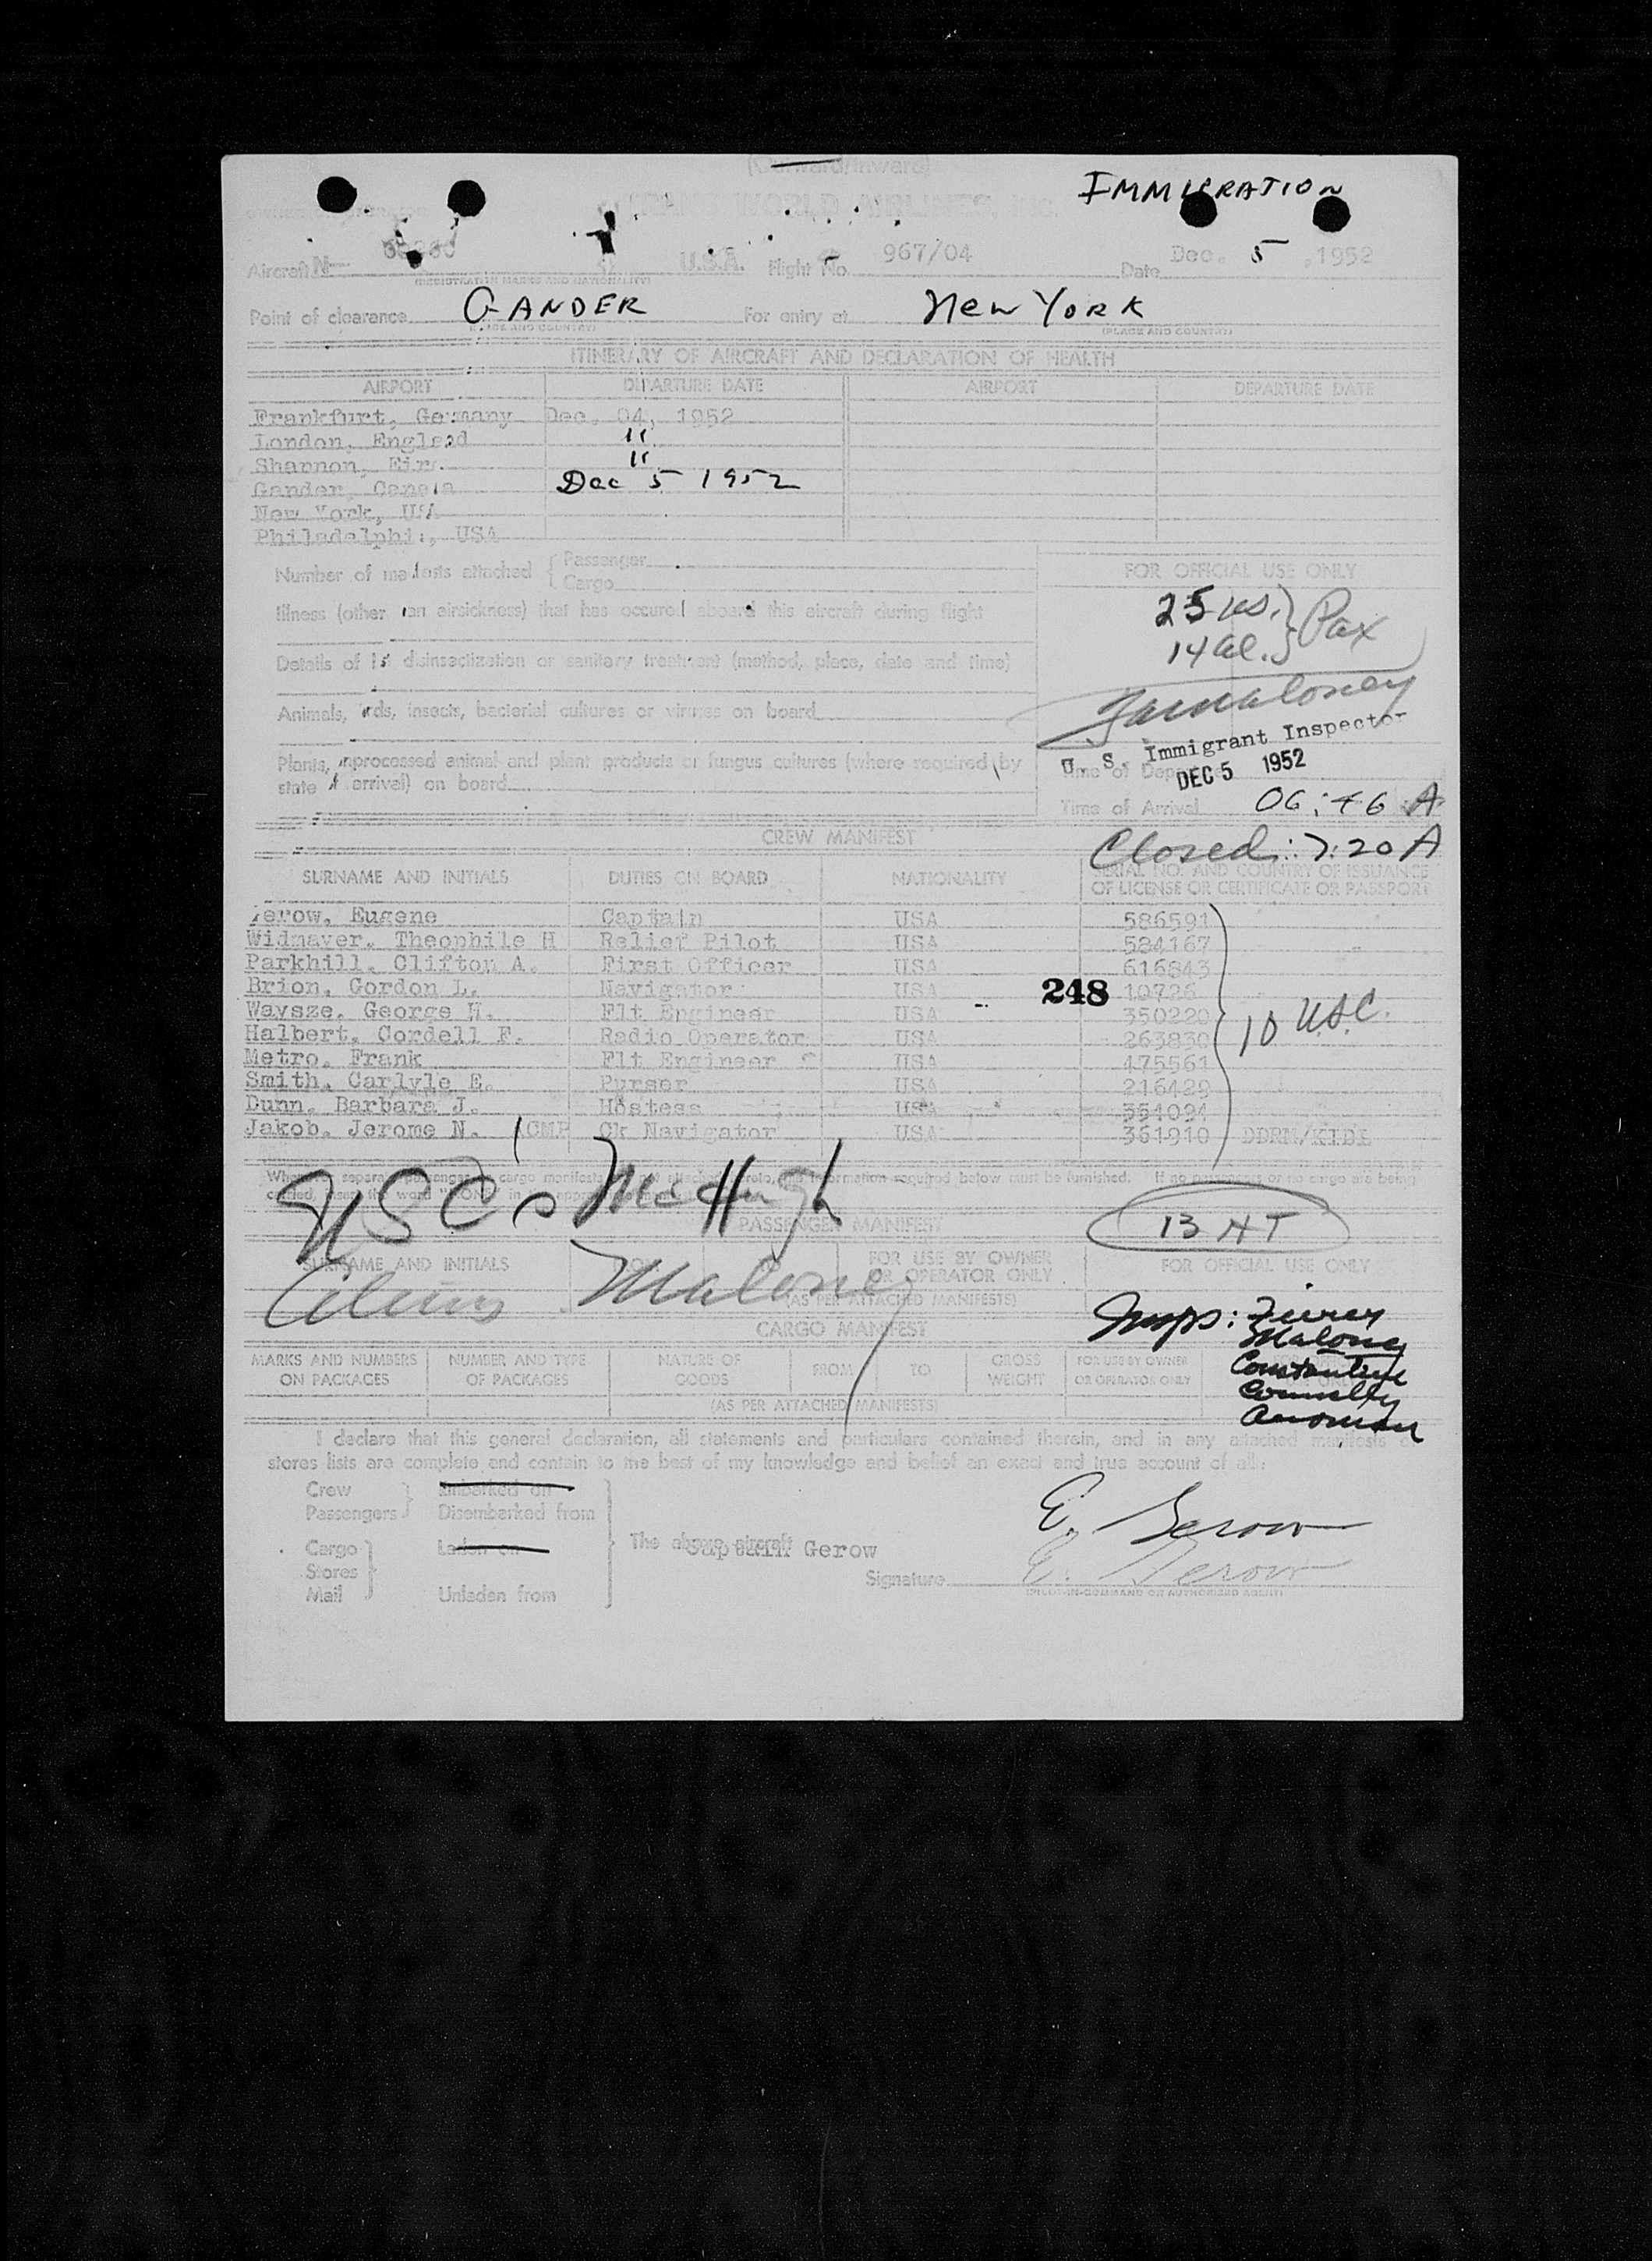 (Outward/Inward)
IMMIGRATION
WORLD AIRLINES, Inc.
Aircraft N- U.S.A. Flight No. 967/04 Date Dec. 5, 1952
(REGISTRATION MARKS AND NATIONALITY)
Point of clearance GANDER For entry at New York
(PLACE AND COUNTRY) (PLACE AND COUNTRY)
ITINERARY OF AIRCRAFT AND DECLARATION OF HEALTH
AIRPORT DEPARTURE DATE AIRPORT DEPARTURE DATE
Frankfurt, Germany Dec. 04, 1952
London, England "
Shannon, Eire "
Gander, Canada Dec 5 1952
New York, USA
Philadelphia, USA
Number of manifests attached { Passenger
Cargo
FOR OFFICIAL USE ONLY
25 US. } Pax
14 al.
Illness (other than airsickness) that has occured aboard this aircraft during flight
Details of last disinsectization or sanitary treatment (method, place, date and time)
Maloney
Animals, birds, insects, bacterial cultures or viruses on board
U. S. Immigrant Inspector
Plants, unprocessed animal and plant products or fungus cultures (where required by
state of arrival) on board
Time of Departure
DEC 5 1952
Time of Arrival 06:46 A
CREW MANIFEST
Closed: 7:20 A
SURNAME AND INITIALS DUTIES ON BOARD NATIONALITY SERIAL NO. AND COUNTRY OF ISSUANCE
OF LICENSE OR CERTIFICATE OR PASSPORT
Gerow, Eugene Captain USA 586591
Widmayer, Theophile H Relief Pilot USA 584167
Parkhill, Clifton A. First Officer USA 616843
Brion, Gordon L. Navigator USA 248 10726
Waysze, George H. Flt Engineer USA 350220
Halbert, Cordell F. Radio Operator USA 263830
10 USC.
Metro, Frank Flt Engineer USA 475561
Smith, Carlyle E. Purser USA 216429
Dunn, Barbara J. Hostess USA 354094
Jakob, Jerome N. (CMP Ck Navigator USA 361910 DDRM/KIDL
When separate passenger or cargo manifests are not attached hereto, the information required below must be furnished. If no passengers or no cargo are being
carried, insert the word "NONE" in the appropriate
USCs McHugh
PASSENGER MANIFEST
13 HT
SURNAME AND INITIALS FOR USE BY OWNER
OR OPERATOR ONLY FOR OFFICIAL USE ONLY
Aliens Maloney
(AS PER ATTACHED MANIFESTS)
CARGO MANIFEST
Insps:
Maloney
Constantine
Connolly
MARKS AND NUMBERS
ON PACKAGES NUMBER AND TYPE
OF PACKAGES NATURE OF
GOODS FROM TO GROSS
WEIGHT FOR USE BY OWNER
OR OPERATOR ONLY
(AS PER ATTACHED MANIFESTS)
I declare that this general declaration, all statements and particulars contained therein, and in any attached manifests or
stores lists are complete and contain to the best of my knowledge and belief an exact and true account of all:
Crew Embarked on
Passengers Disembarked from
E. Gerow
Cargo Laden on The above aircraft
Captain Gerow
Stores
Signature E. Gerow
Mail Unladen from
(PILOT-IN-COMMAND OR AUTHORIZED AGENT)